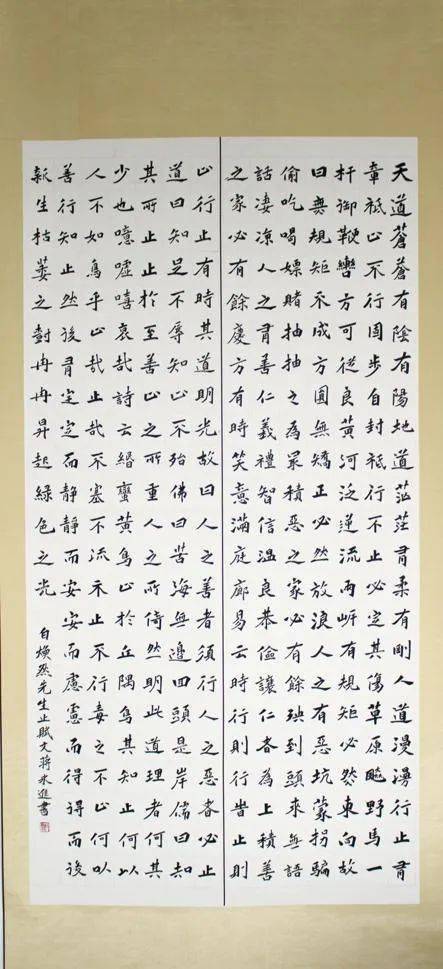 天道蒼蒼有陰有陽地道茫茫有柔有剛人道漫漫行止有
章祗止不行固步自封祗行不止必定其傷草原馳野馬一
杆御鞭轡方可從良黃河泛逆流兩岍有規矩必然東向故
曰無規矩不成方圓無矯正必然放浪人之有惡坑蒙拐騙
偷吃喝嫖賭抽抽之為累積惡之家必有餘殃到頭來無語
話凄凉人之有善仁義禮智信温良恭儉讓仁者為上積善
之家必有餘慶方有時笑意滿庭廊易云時行則行時止則
止行止有時其道明光故曰人之善者須行人之惡者必止
道曰知足不辱知止不殆佛曰苦海無邊回頭是岸儒曰知
其所止止於至善止之所重人之所倚然明此道理者何其
少也噫嘘嘻哀哉詩云緡蠻黃鳥止於丘隅鳥其知止何以
人不如鳥乎止哉止哉不塞不流不止不行毒之不止何以
善行知止然後有定定而静静而安安而慮慮而得得而後
新生枯萎之樹冉冉昇起綠色之光
白煥然先生止賦文蔣永進書